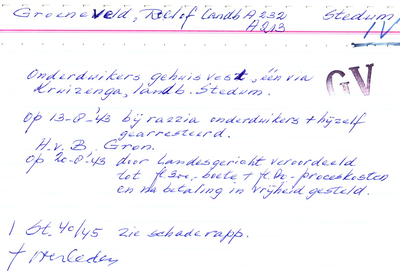 Groeneveld, Roelof Landb A 232 Stedum
A 213
IV
Onderduikers gehuisvest, één via
Kruizenga, landb. Stedum.
GV
Op 13-8-'43 bij razzia onderduikers + hijzelf
gearresteerd.
H.v.B. Gron.
Op 20-8-'43 door Landesgericht veroordeeld
tot fl 300,- boete + fl. 20,- proceskosten
en na betaling in vrijheid gesteld.
1 St. 40/45 zie schaderapp.
† overleden